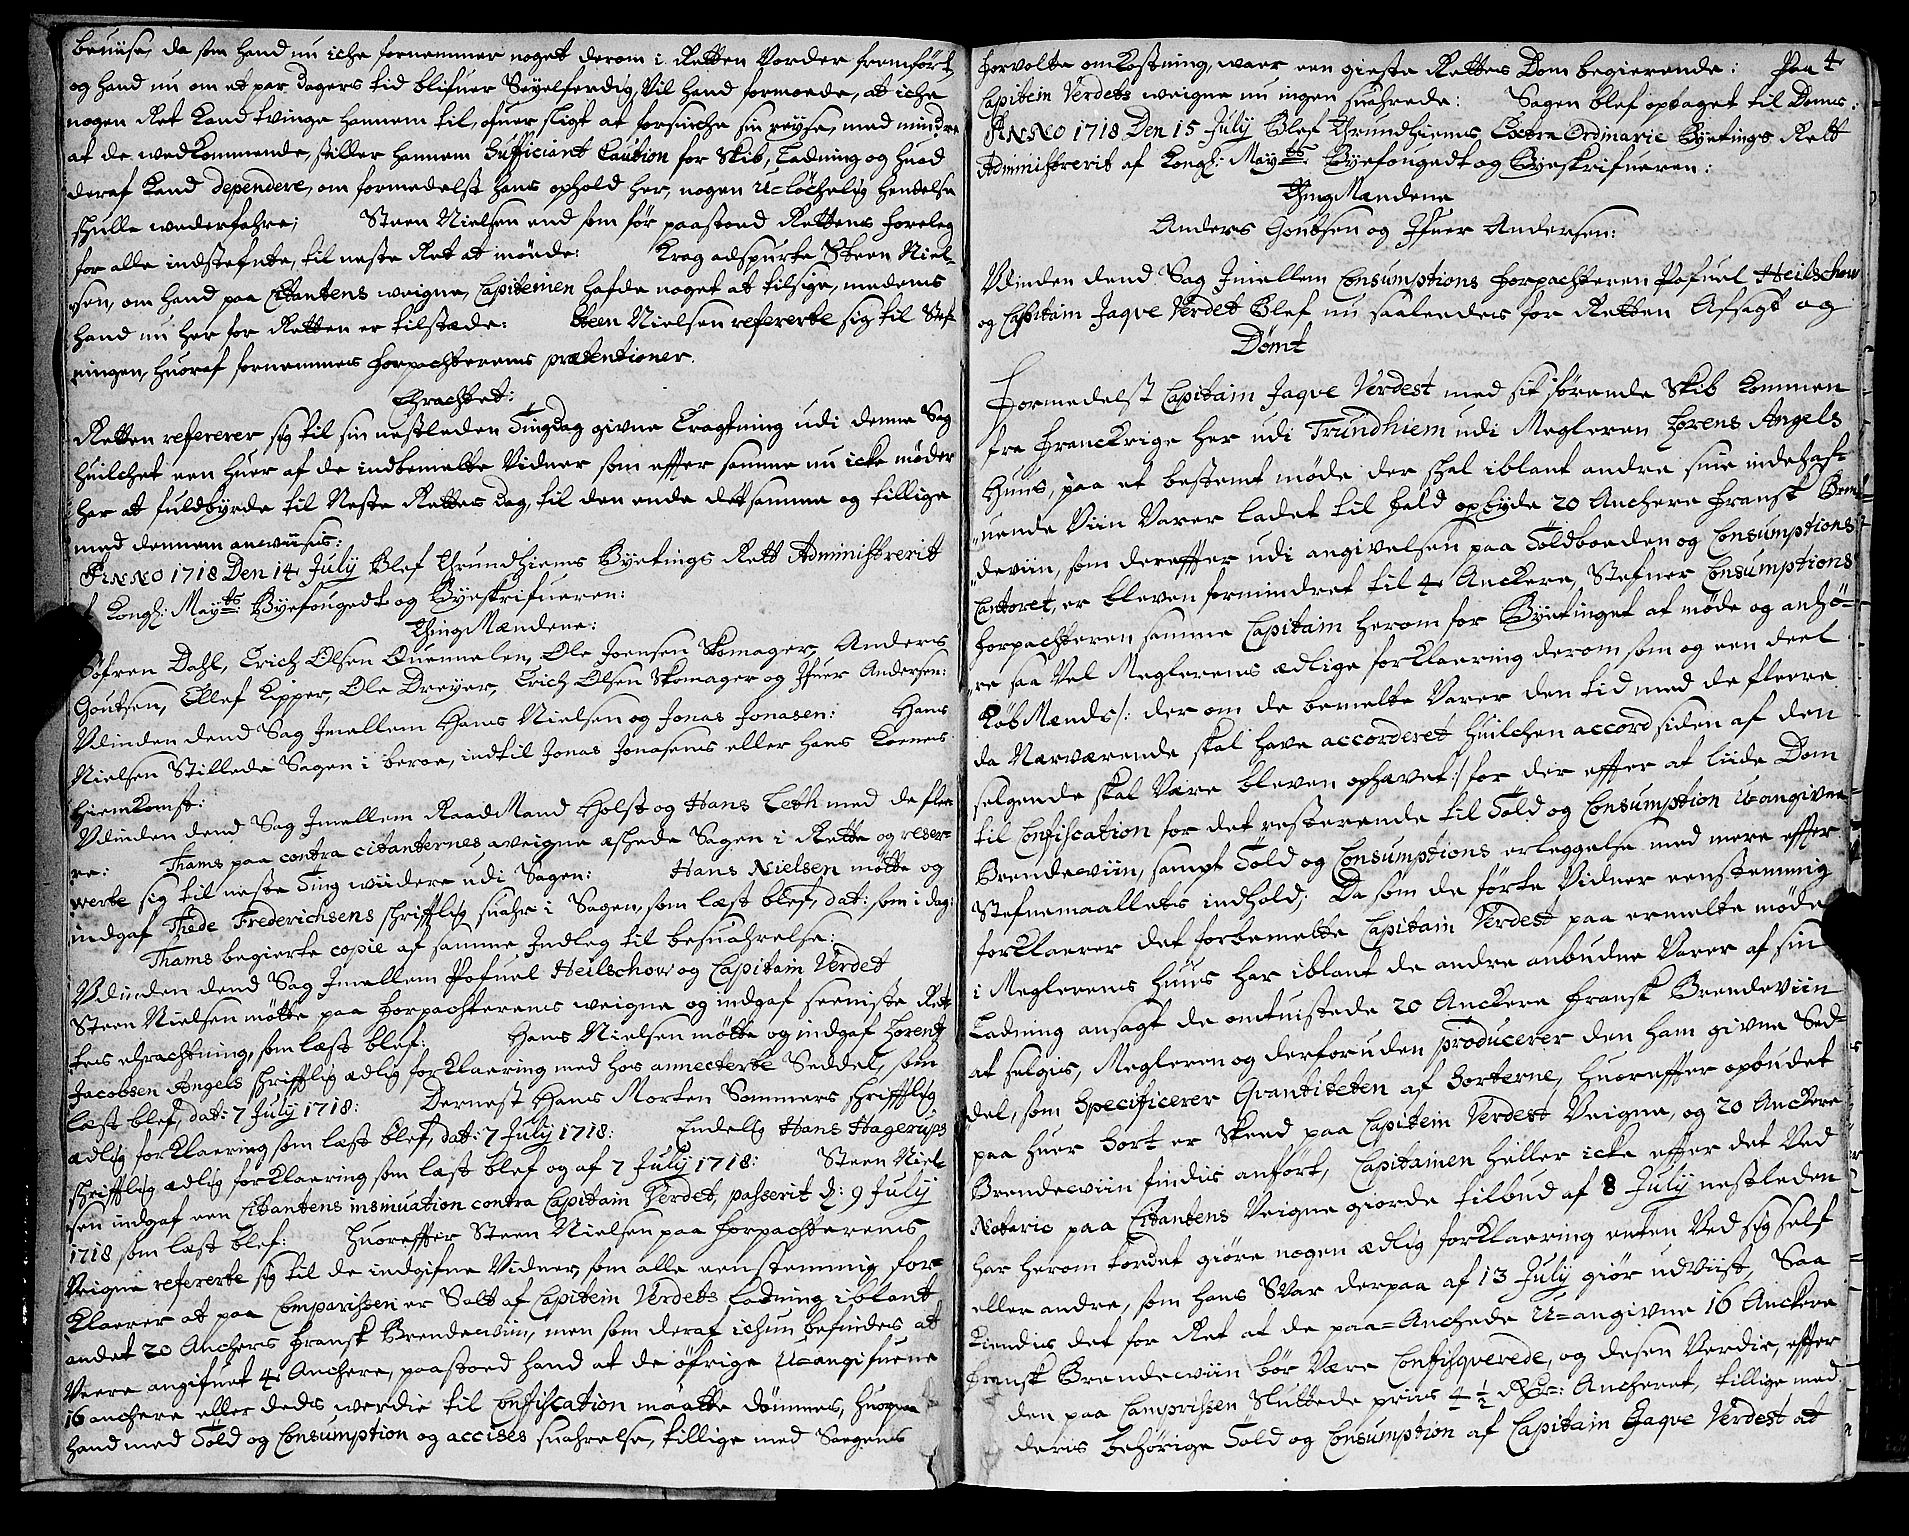 beviise, da som hand nu iche fornemmer noget derom i Retten Vorder fremført
og hand nu om et par Dagers tid blifuer Seyelferdig, Vil hand formoede, at iche
nogen Ret Kand tvinge hannem til, ofuer sligt at forsinche sin reyse, med mindre
at de wedkommende, stiller hannem Sufficiant Caution for Skib, Ladning og huad
deraf Kand dependere, om formedelst hans ophold her, nogen U-løchelig hendelse
schulle wederfahre; Steen Nielsen end som før paastoed Rettens foreleg
for alle indstefnte, til neste Ret at møede: Krog adspurte Steen Niel-
sen, om hand paa Citantens weigne, Capiteinen hafde noget at tilsige, medens
hand nu her for Retten er tilstæde: Steen Nielsen refererte sig til Stef-
ningen, huoraf fornemmes forpachterens prætentioner.
Ehrachtet:
Retten refererer sig til sin nestleden Tingdag givne Eragtning udi denne Sag
huilchet een huer af de indbemelte Vidner som effter samme nu icke møder
har at fuldbyrde til Neste Rettes Dag, til den ende dettsamme og tillige
med dennem anvises:
ANNO 1718 Den 14 July Blef Thrundhiems Byetings Rett Administrerit
af Kongl: Mayts: Byefougedt og Byeskrifueren:
Thing Mændene:
Søfren Dahl, Erich Olsen Quennelen, Ole Joensen Skomager, Anders
Goutsen, Ellef Kipper, Ole Dreyer, Erich Olsen Skomager og Ifuer Andersen:
Udinden dend Sag Imellem Hans Nielsen og Jonas Jonasen: Hans
Nielsen Stillede Sagen i beroe, indtil Jonas Jonasens eller hans Kones
Hiemkomst:
Udinden dend Sag Imellem Raad Mand Holst og Hans Leth med de flee
re: Thams paa contra citanternes aveigne eshede Sagen i Rette og reser-
werte sig til neste Ting wiidere udi Sagen: Hans Nielsen møtte og
indgaf Thede Frederichsens schrifftlig suahr i Sagen, som læst blef, dat: som i dag:
Thams begierte copie af samme Indleg til besuahrelse:
Udinden dend Sag Imellem Pofuel Heilschow og Capitain Verdet
Steen Nielsen møtte paa forpachterens weigne og indgaf seeniste Ret
tens ehrachtning, som læst blef: Hans Nielsen møtte og indgaf Lorentz
Jacobsen Angels schrifftlig ædlig forklaering med hos annecterte Seddel, som
læst blef, dat: 7 July 1718: Dernest Hans Morten Sommers schrifftlig
ædlig forklaering som læst blef, dat: 7 July 1718: Endelig Hans Hagerups
schrifftlig ædlig forklaering som læst blef og af 7 July 1718: Steen Niel-
sen indgaf een Citantens insinuation contra Capitain Verdet, passerit d: 9 July
1718 som læst blef: Huoreffter Steen Nielsen paa forpachterens
Veigne refererte sig til de indgifne Vidner, som alle eenstemmig for-
klaerer at paa Comparissen er Solt af Capitein Verdets Ladning iblant
andet 20 Anchers fransk Brendewiin, men som deraf ichun befindes at
Veere angifuet 4 Anchere, paastoed hand at de øfrige U-angifuene
16 anchere eller deds werdie til Confiscation maatte dømmes, huorpaa
hand med Told og Consumption og accises suahrelse, tillige med Saugens
forvolte omkostning, waer een gieste Rettes Dom begierende: Paa 4
Capitein Verdets weigne nu ingen suahrede: Sagen blef optaget til Doms:
ANNO 1718 Den 15 July Blef Thrundhiems Extra Ordinarie Byetings Rett
Administrerit af Kongl: Mayts: Byefougedt og Byeskrifueren:
Thing Mændene
Anders Goutsen og Ifuer Andersen:
Udinden dend Sag Imellem Consumptions forpachteren Pofuel Heilschow
og Capitain Jaqve Verdet Blef nu saaleedes for Retten Afsagt og
Dømt
Formedelst Capitain Jaqve Verdest med sit førende Skib kommen
fra Franckrige her udi Trundhiem udi Megleren Lorens Angels
Huus, paa et bestemt møde der shal iblant andre sine indehaf-
uende Viin Varer ladet til fals opbyde 20 Anchere fransk Bren-
deviin, som dereffter udi angivelsen paa Toldboeden og Consumptions
Cantoret, er bleven formindret til 4 Anckere, Stefner Consumptions
forpachteren samme Capitain herom for Byetinget at møde og anhø-
re saa Vel Meglerens ædlige forklaering derom som og een deel
Kiøb Mænds /: der om de bemelte Varer den tid med de fleere
da Nærværende skal have accorderet huilchen accord siden af den
selgende skal Være bleven ophævet :/ for der effter at liide Dom
til Confiscation for det resterende til Told og Consumption u-angivne
Brendewiin, sampt Told og Consumptions erleggelse med mere effter
Stefnemaallets indhold; Da som de førte Vidner eenstemmig
forklaerer det forbemelte Capitain Verdest paa ermelte møde
i Meglerens Huus har iblant de andre anbudne Varer af sin
Ladning ansagt de omtuistede 20 Anckere fransk Brendeviin
at selgis, Megleren og derforuden producerer den ham givne Sed-
del, som Specificerer Qvantiteten af Sorterne, huoreffter opbudet
paa huer Sort er Skeed paa Capitein Verdest Veigne, og 20 Anckere
Brendewiin findis anført, Capitainen heller icke effter det Ved
Notario paa Citantens Veigne giorde tilbud af 8 July nestleden
har herom tordet giøre nogen ædlig forklaering enten Ved sig self
eller andre, som hans Svar derpaa af 13 July giør udviist, Saa
kiendis det for Ret at de paa-Anchede U-angivne 16 Anckere
fransk Brendewiin bør Være Confisqverede, og desen Verdie, effter
den paa Comprissen Sluttede priis 4 1/2 Rdr: Ancheret, tillige med
deris behørige Told og Consumption af Capitain Jaqve Verdest at